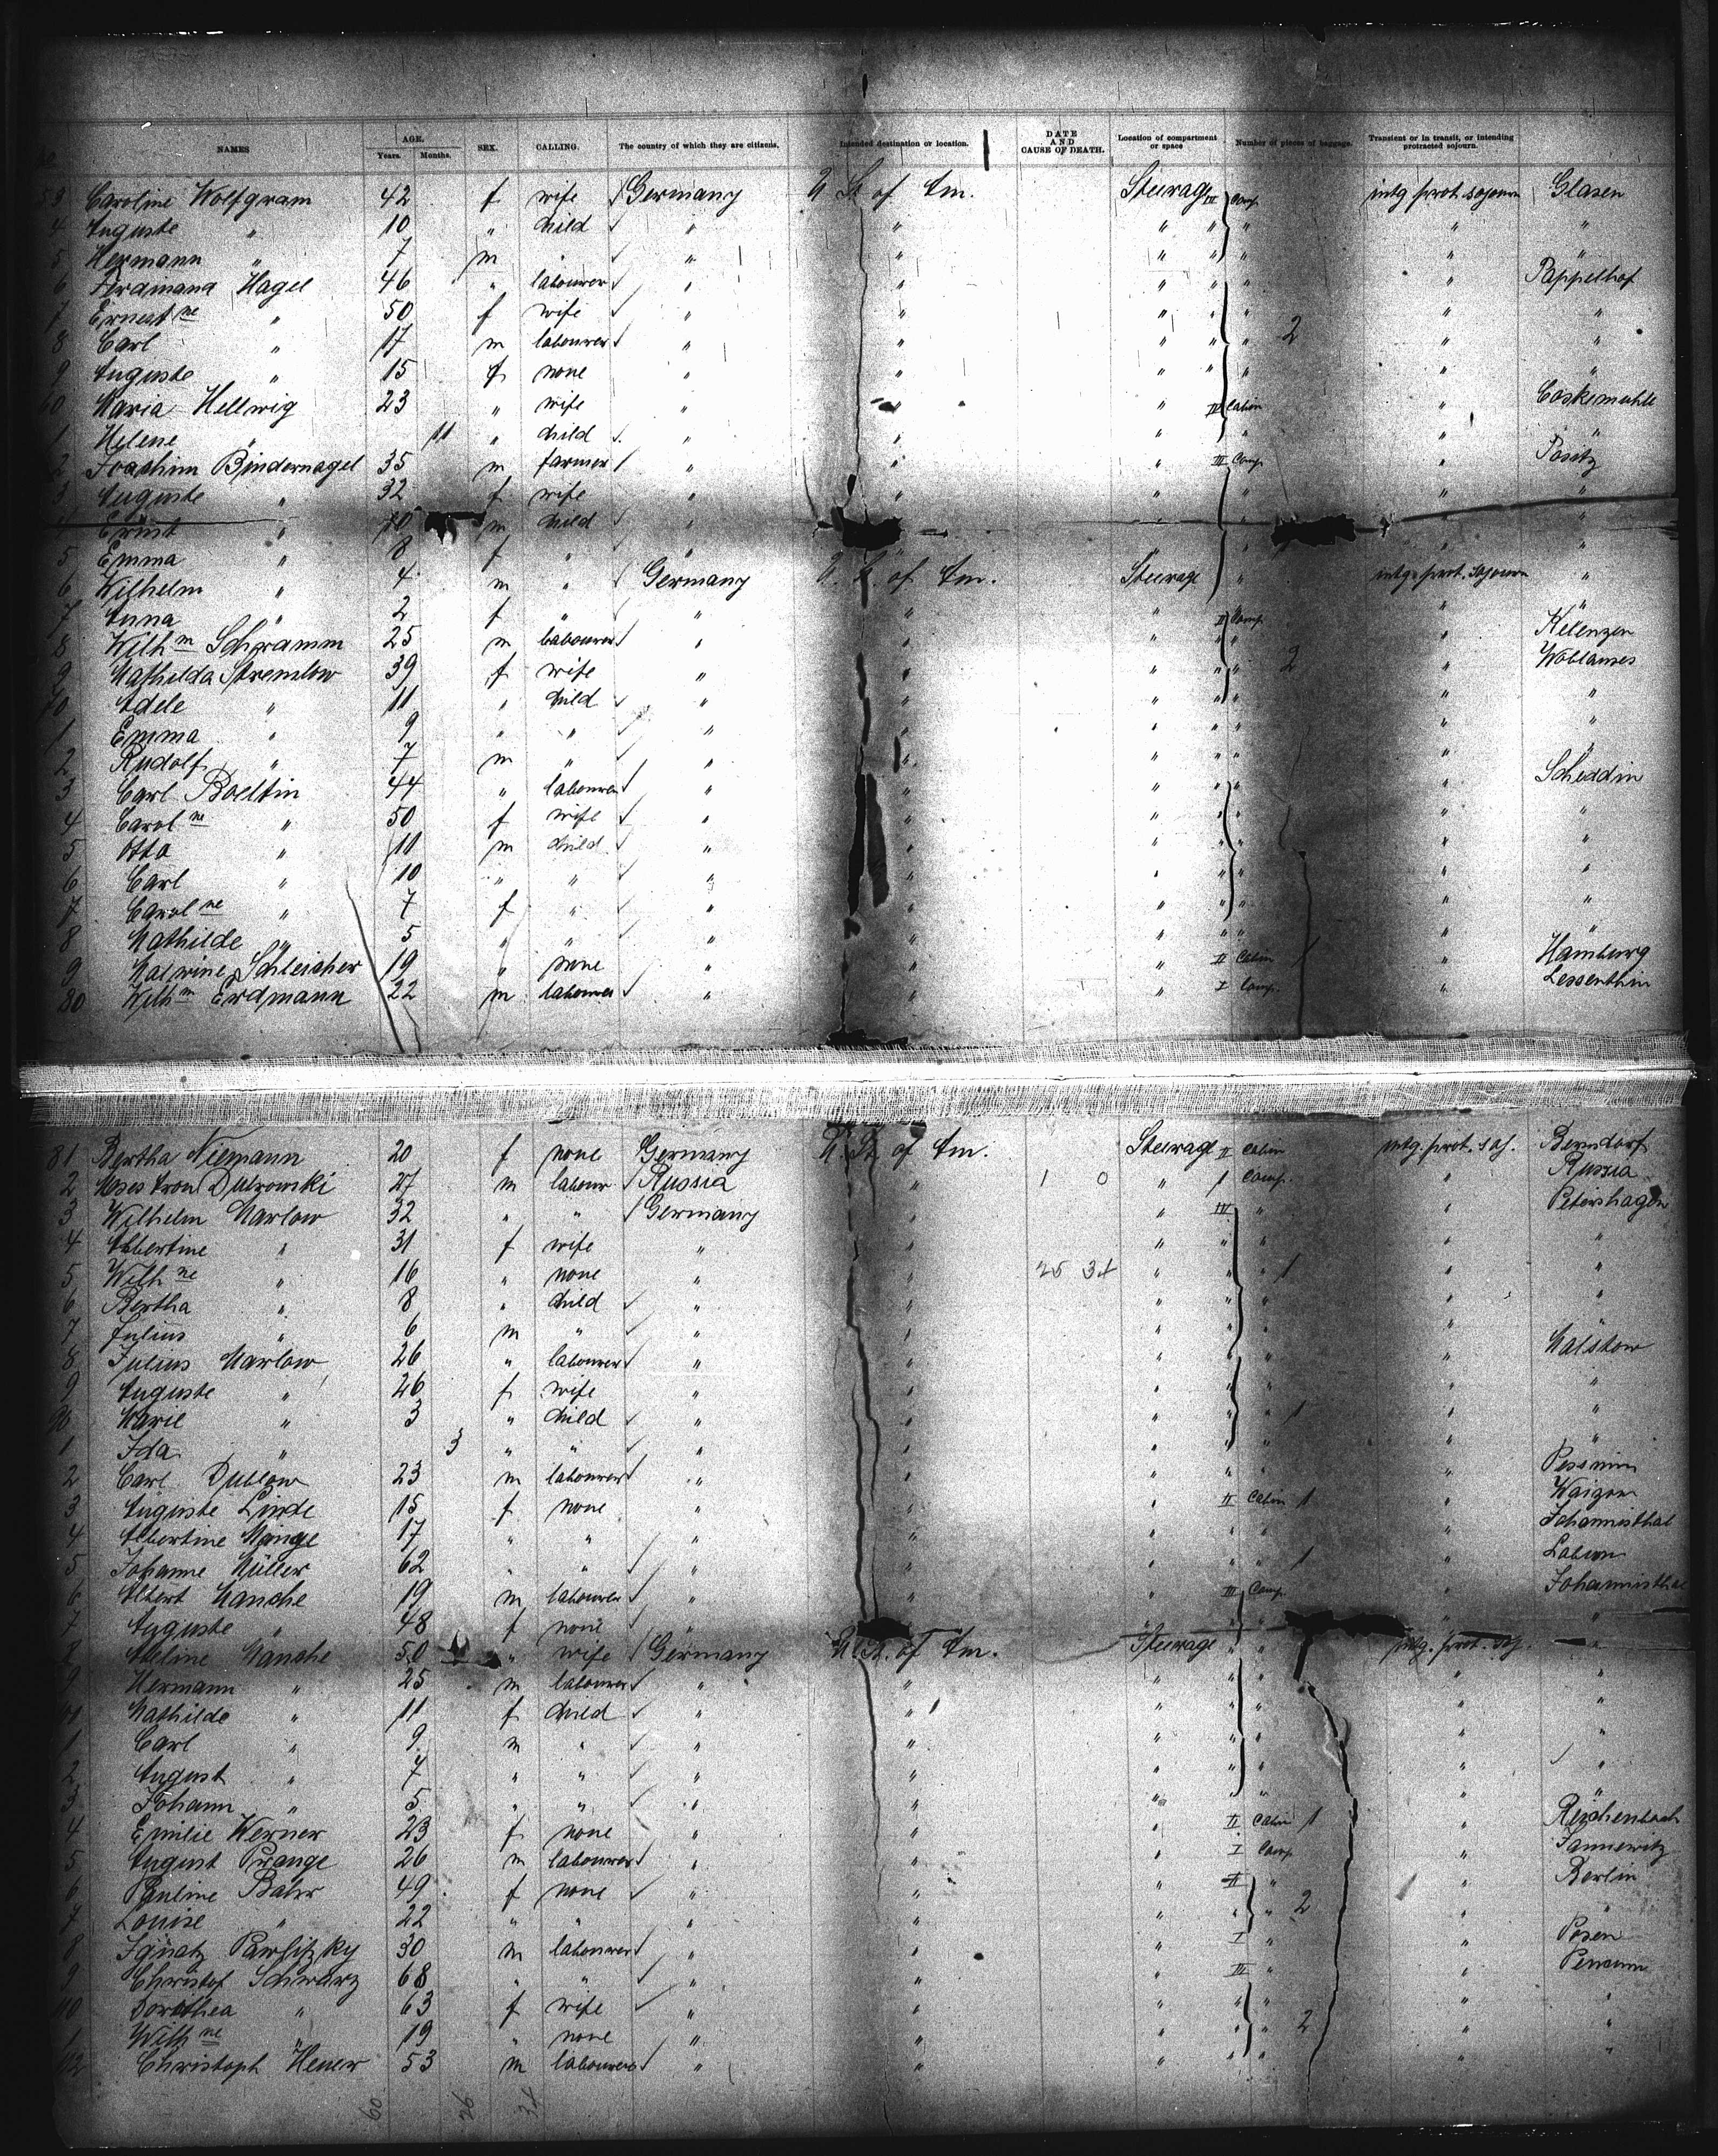 NAMES AGE. Years. Months. SEX. CALLING. The country of which they are citizens. Intended destination or location. DATE AND CAUSE OF DEATH. Location of compartment or space Number of pieces of baggage. Transient or in transit, or intending protracted sojourn.
59 Caroline Wolfgram 42 f wife Germany U St of Am. Steerage III Comp. intg prot. sojourn Glasen
4 Auguste " 10 " child " " " " " " "
5 Hermann " 7 m " " " " " " " "
6 Ferdinand Hagel 46 " labourer " " " " " " Pappelhof
7 Ernestne " 50 f wife " " " " " "
8 Carl " 17 m labourer " " " " " 2 " "
9 Auguste " 15 f none " " " " " " "
60 Maria Hellwig 23 " wife " " " IV Cabin " Coskemuhle
1 Helene " 11 " child " " " " " "
2 Joachim Bindernagel 35 m farmer " " " III Comp. " Positz
3 Auguste " 32 f wife " " " " " "
4 Ernst " 10 m child " "
5 Emma " 8 f " " " " " " "
6 Wilhelm " 4 m " Germany U. St. of Am. Steerage " intg. prot. sojourn "
7 Anna " 2 f " " " " II Comp. " "
8 Wilhm Schramm 25 m labourer " " " " " Kelenzen
9 Mathilda Strenslow 39 f wife " " " " 2 " Woblanses
70 Adele " 11 " child " " " " " "
1 Emma " 9 " " " " " " " "
2 Rudolf " 7 m " " " " " " "
3 Carl Boeltin 44 " labourer " " " " " Scheddin
4 Carolne " 50 f wife " " " " " "
5 Otto " 11 m child " " " " " "
6 Carl " 10 " " " " " " " "
7 Carolne " 7 f " " " " " " "
8 Mathilde " 5 " " " " " " " "
9 Malwine Schleicher 19 " none " " " II Cabin 1 " Hamburg
80 Wilhm Erdmann 22 m labourer " " " I Comp. " Lessenthin
81 Bertha Niemann 20 f none Germany U. St. of Am. Steerage II Cabin intg. prot. soj. Berndorf
2 27 m labour Russia " 1 0 " 1 Comp. " Russia
3 Wilhelm Marlow 32 " " Germany " IV " " Petershagen
4 Albertine " 31 f wife " " " " " " "
5 Wilhne " 16 " none " " 25 34 " " " 1 " "
6 Bertha " 8 " child " " " " " " "
7 Julius " 6 m " " " " " " " "
8 Julius Marlow 26 " labourer " " " " " " Malskow
9 Auguste " 26 f wife " " " " " " "
90 Marie " 3 " child " " " " " 1 " "
1 Ida " 3 " " " " " " " " "
2 Carl Dublow 23 m labourer " " " " " " Pessmin
3 Auguste Linde 15 f none " " " II Cabin 1 " Waizow
4 Albertine Mange 17 " " " " " " " " Johannisthal
5 Johanne Müller 62 " " " " " " " 1 " Labun
6 Albert Manshe 19 m labourer " " " III Comp. " Johannisthal
7 Auguste " 48 f none " " " " " "
8 Adeline Manshe 50 " wife Germany U St. of Am. Steerage " " intg. prot. soj. "
9 Hermann " 25 m labourer " " " " " " "
Mathilde " 11 f child " " " " " " "
1 Carl " 9 m " " " " " " " "
2 August " 7 " " " " " " " " "
3 Johann " 5 " " " " " " " " "
4 Emilie Werner 23 f none " " " II Cabin 1 " Reichenbach
5 August Prange 26 m labourer " " " I Comp " Jannewitz
6 Pauline Bahr 49 f none " " " II " " Berlin
7 Louise " 22 " " " " " " " 2 " "
8 Ignatz Pawlitzky 30 m labourer " " " I " " Posen
9 Christof Schwarz 68 " " " " " III " " Pencun
110 Dorothea " 63 f wife " " " " " " "
1 Wilhne " 19 " none " " " " " 2 " "
112 Christoph Heuer 53 m labourer " " " " " " "
60 26 34